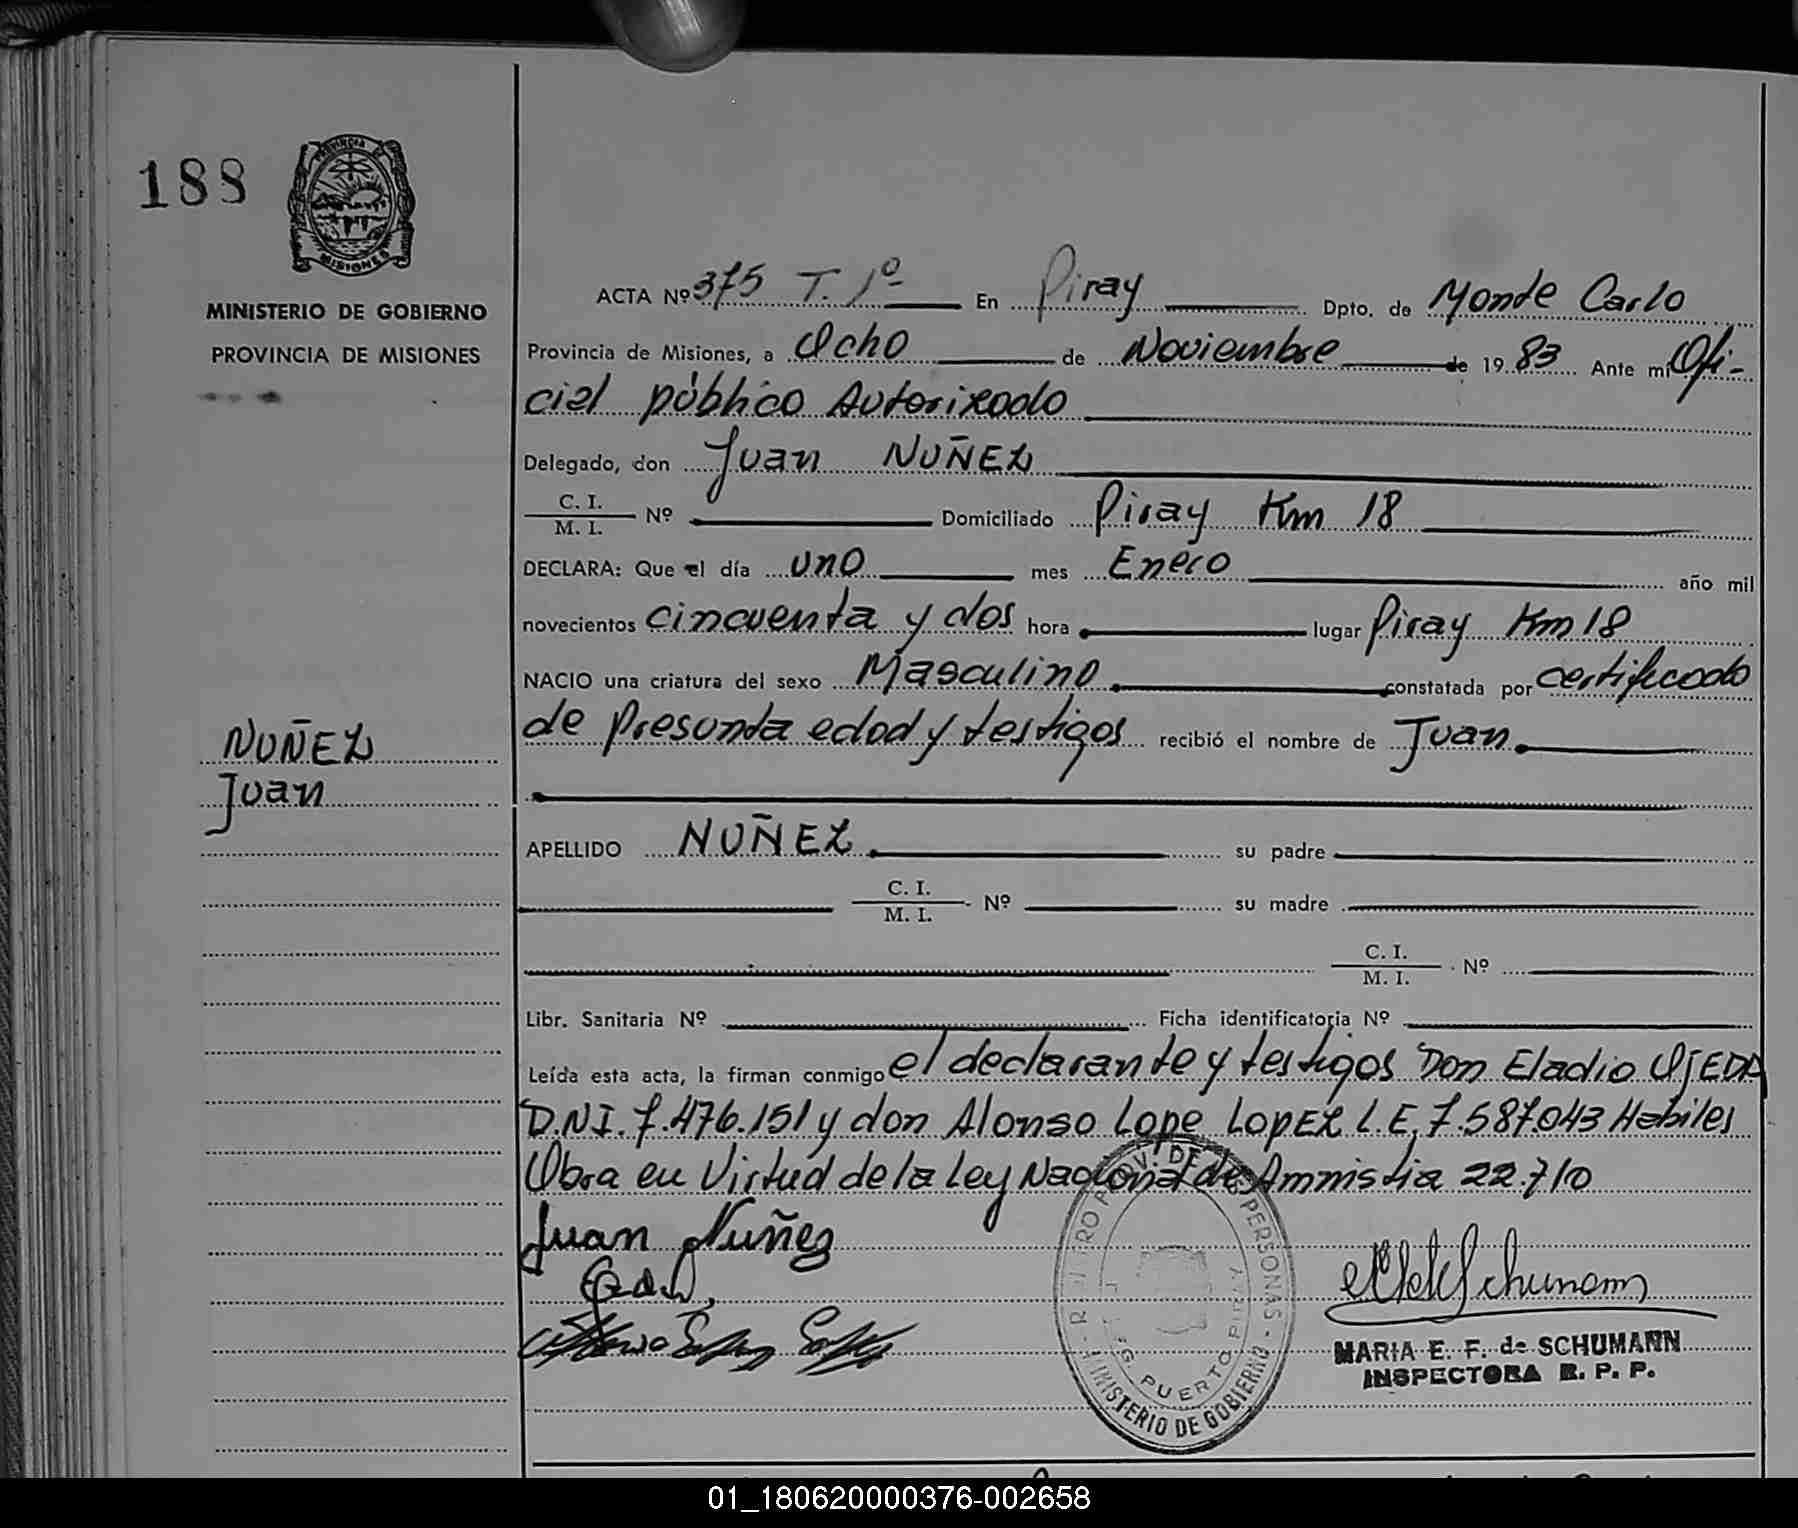 188
PROVINCIA DE
MISIONES
MINISTERIO DE GOBIERNO
PROVINCIA DE MISIONES
ACTA Nº 375 T. 1º En Piray Dpto. de Monte Carlo
Provincia de Misiones, a Ocho de Noviembre de 1983 Ante mi Ofi-
cial público Autorizado
Delegado, don Juan NUÑEZ
C. I.
M. I. Nº Domiciliado Piray Km 18
DECLARA: Que el día uno mes Enero año mil
novecientos cincuenta y dos hora lugar Piray Km 18
NACIO una criatura del sexo Masculino constatada por certificado
de presunta edad y testigos recibió el nombre de Juan
NUÑEZ
Juan
APELLIDO NUÑEZ su padre
C. I.
M. I. Nº su madre
C. I.
M. I. Nº
Libr. Sanitaria Nº Ficha identificatoria Nº
Leída esta acta, la firman conmigo el declarante y testigos Don Eladio OJEDA
D.N.I. 7.476.151 y don Alonso Lope LopEZ L.E. 7.587.043 Habiles
Obra en Virtud de la Ley Nacional de Amnistia 22.710
Juan Nuñez
Schumann
MARIA E. F. de SCHUMANN
INSPECTORA R. P. P.
REGISTRO PROV. DE LAS PERSONAS
PUERTO PIRAY
MINISTERIO DE GOBIERNO
01_180620000376-002658